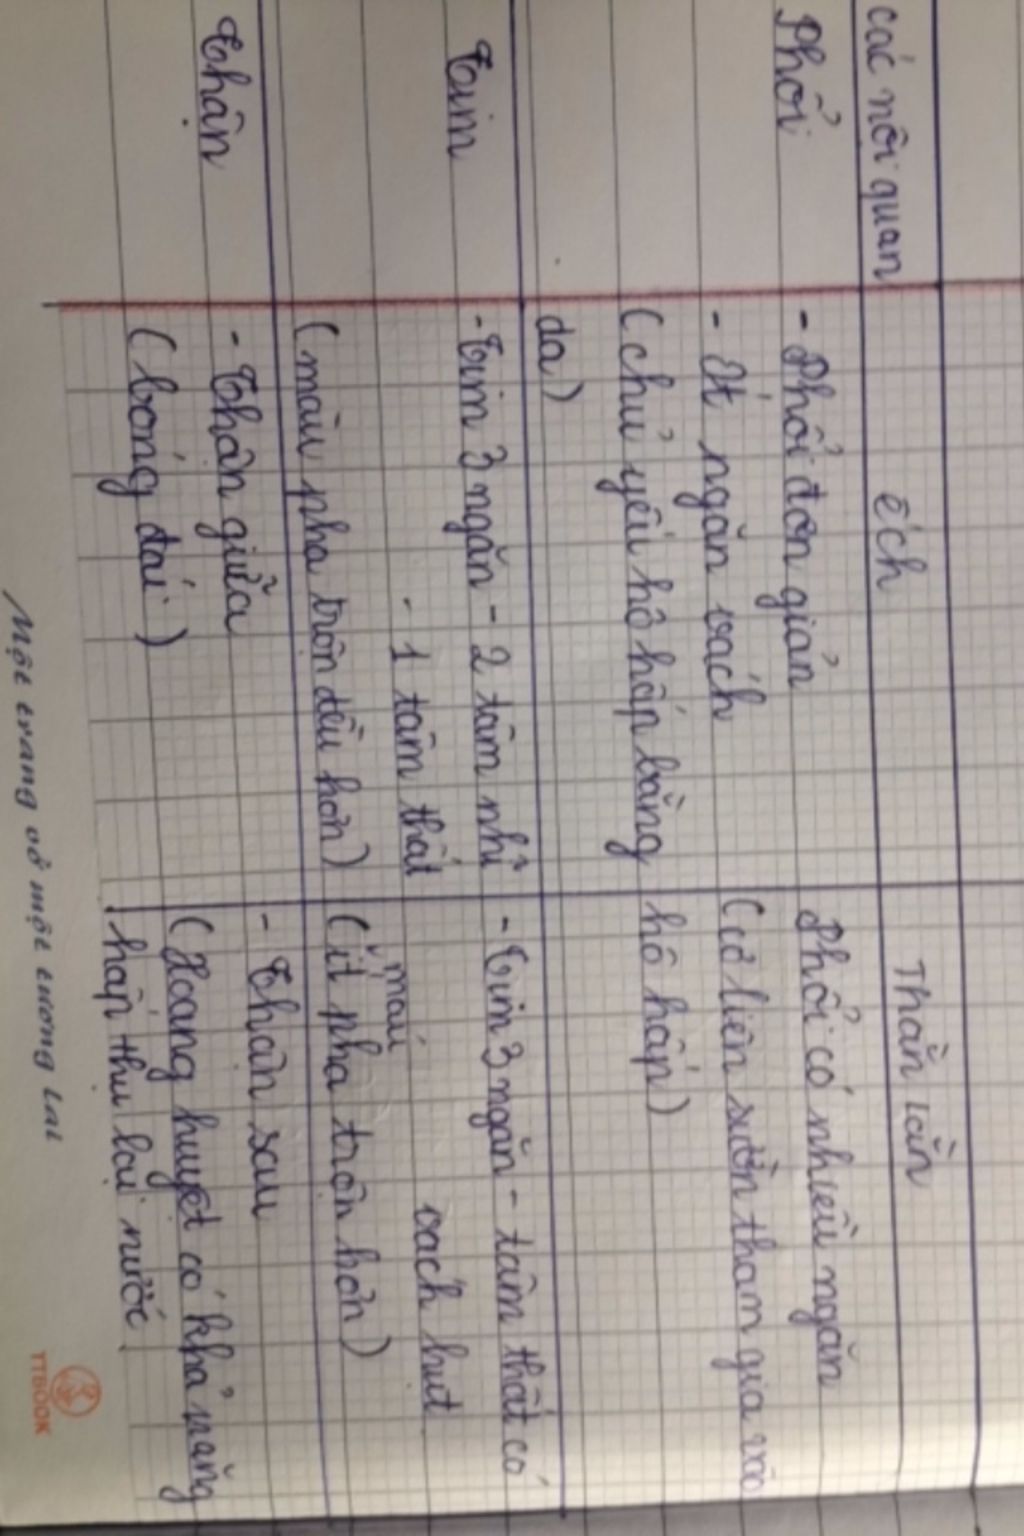 các nội quan ếch Thằn lằn
Phổi - Phổi đơn giản Phổi có nhiều ngăn
- Ít ngăn vách (cơ liên sườn tham gia vào
(chủ yếu hô hấp bằng hô hấp)
da)
Tim - Tim 3 ngăn - 2 tâm nhĩ - Tim 3 ngăn - tâm thất có
- 1 tâm thất vách hụt
máu
(máu pha trộn đều hơn) (ít pha trộn hơn)
Thận - Thận giữa - Thận sau
(bóng đái) (Hoang huyệt có khả năng
hấp thu lại nước
Một trang vở một tương lai
TTBOOK